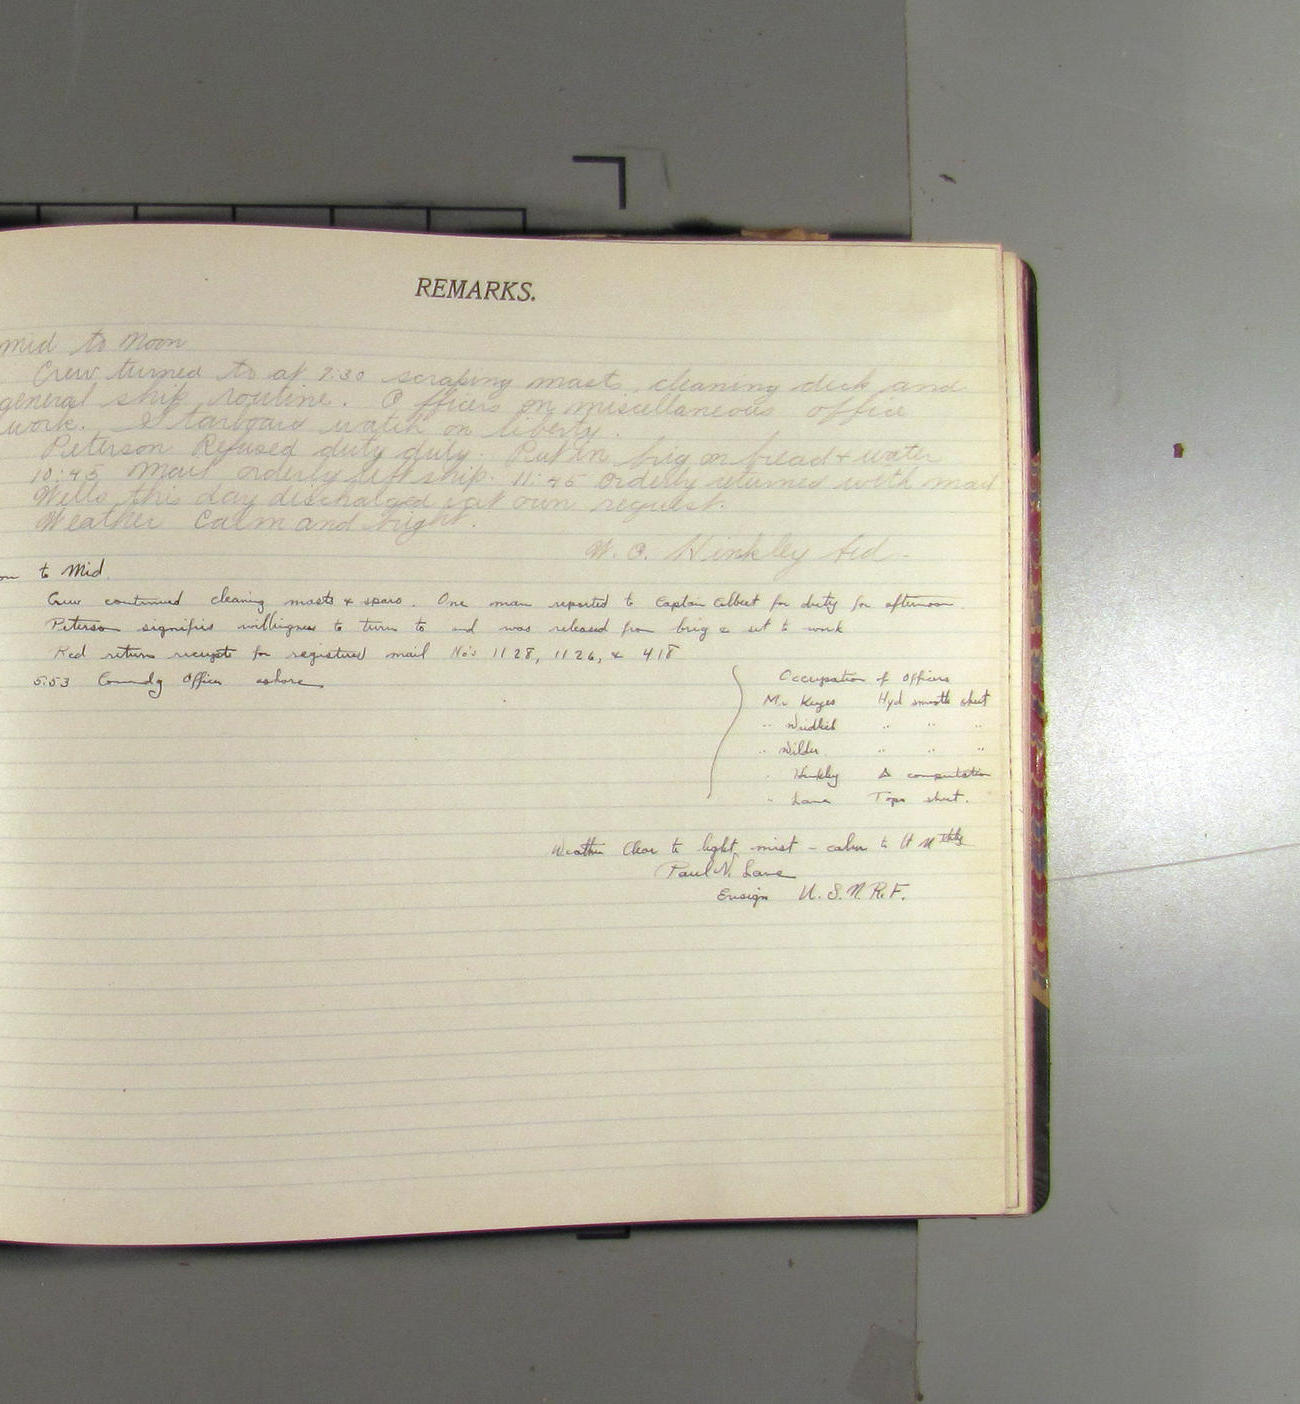 REMARKS.
Mid to Noon
Crew turned to at 7:30 scraping masts, cleaning deck and
general ship routine. Officers on miscellaneous office
work. Starboard watch on liberty.
Peterson Refused duty duty Put in brig on bread + water
10:45 Mail orderly left ship. 11:45 orderly returned with mail
Wells this day discharged at own request.
Weather Calm and bright.
W. O. Hinkley
to Mid.
Crew continued cleaning masts & spars. One man reported to Captain Gilbert for duty for afternoon.
Peterson signifies willingness to turn to and was released from brig & set to work
Rcd return receipts for registered mail No's 1128, 1126, & 418
5:53 Comndg Officer ashore
Occupation of Officers
Mr Keyes Hyd smooth sheet
" Weidlich " " "
" Wilder " " "
" Hinkley Δ computation
" Lane Topo sheet.
Weather Clear to light mist – calm to lt N
Paul N. Lane
Ensign U.S.N.R.F.